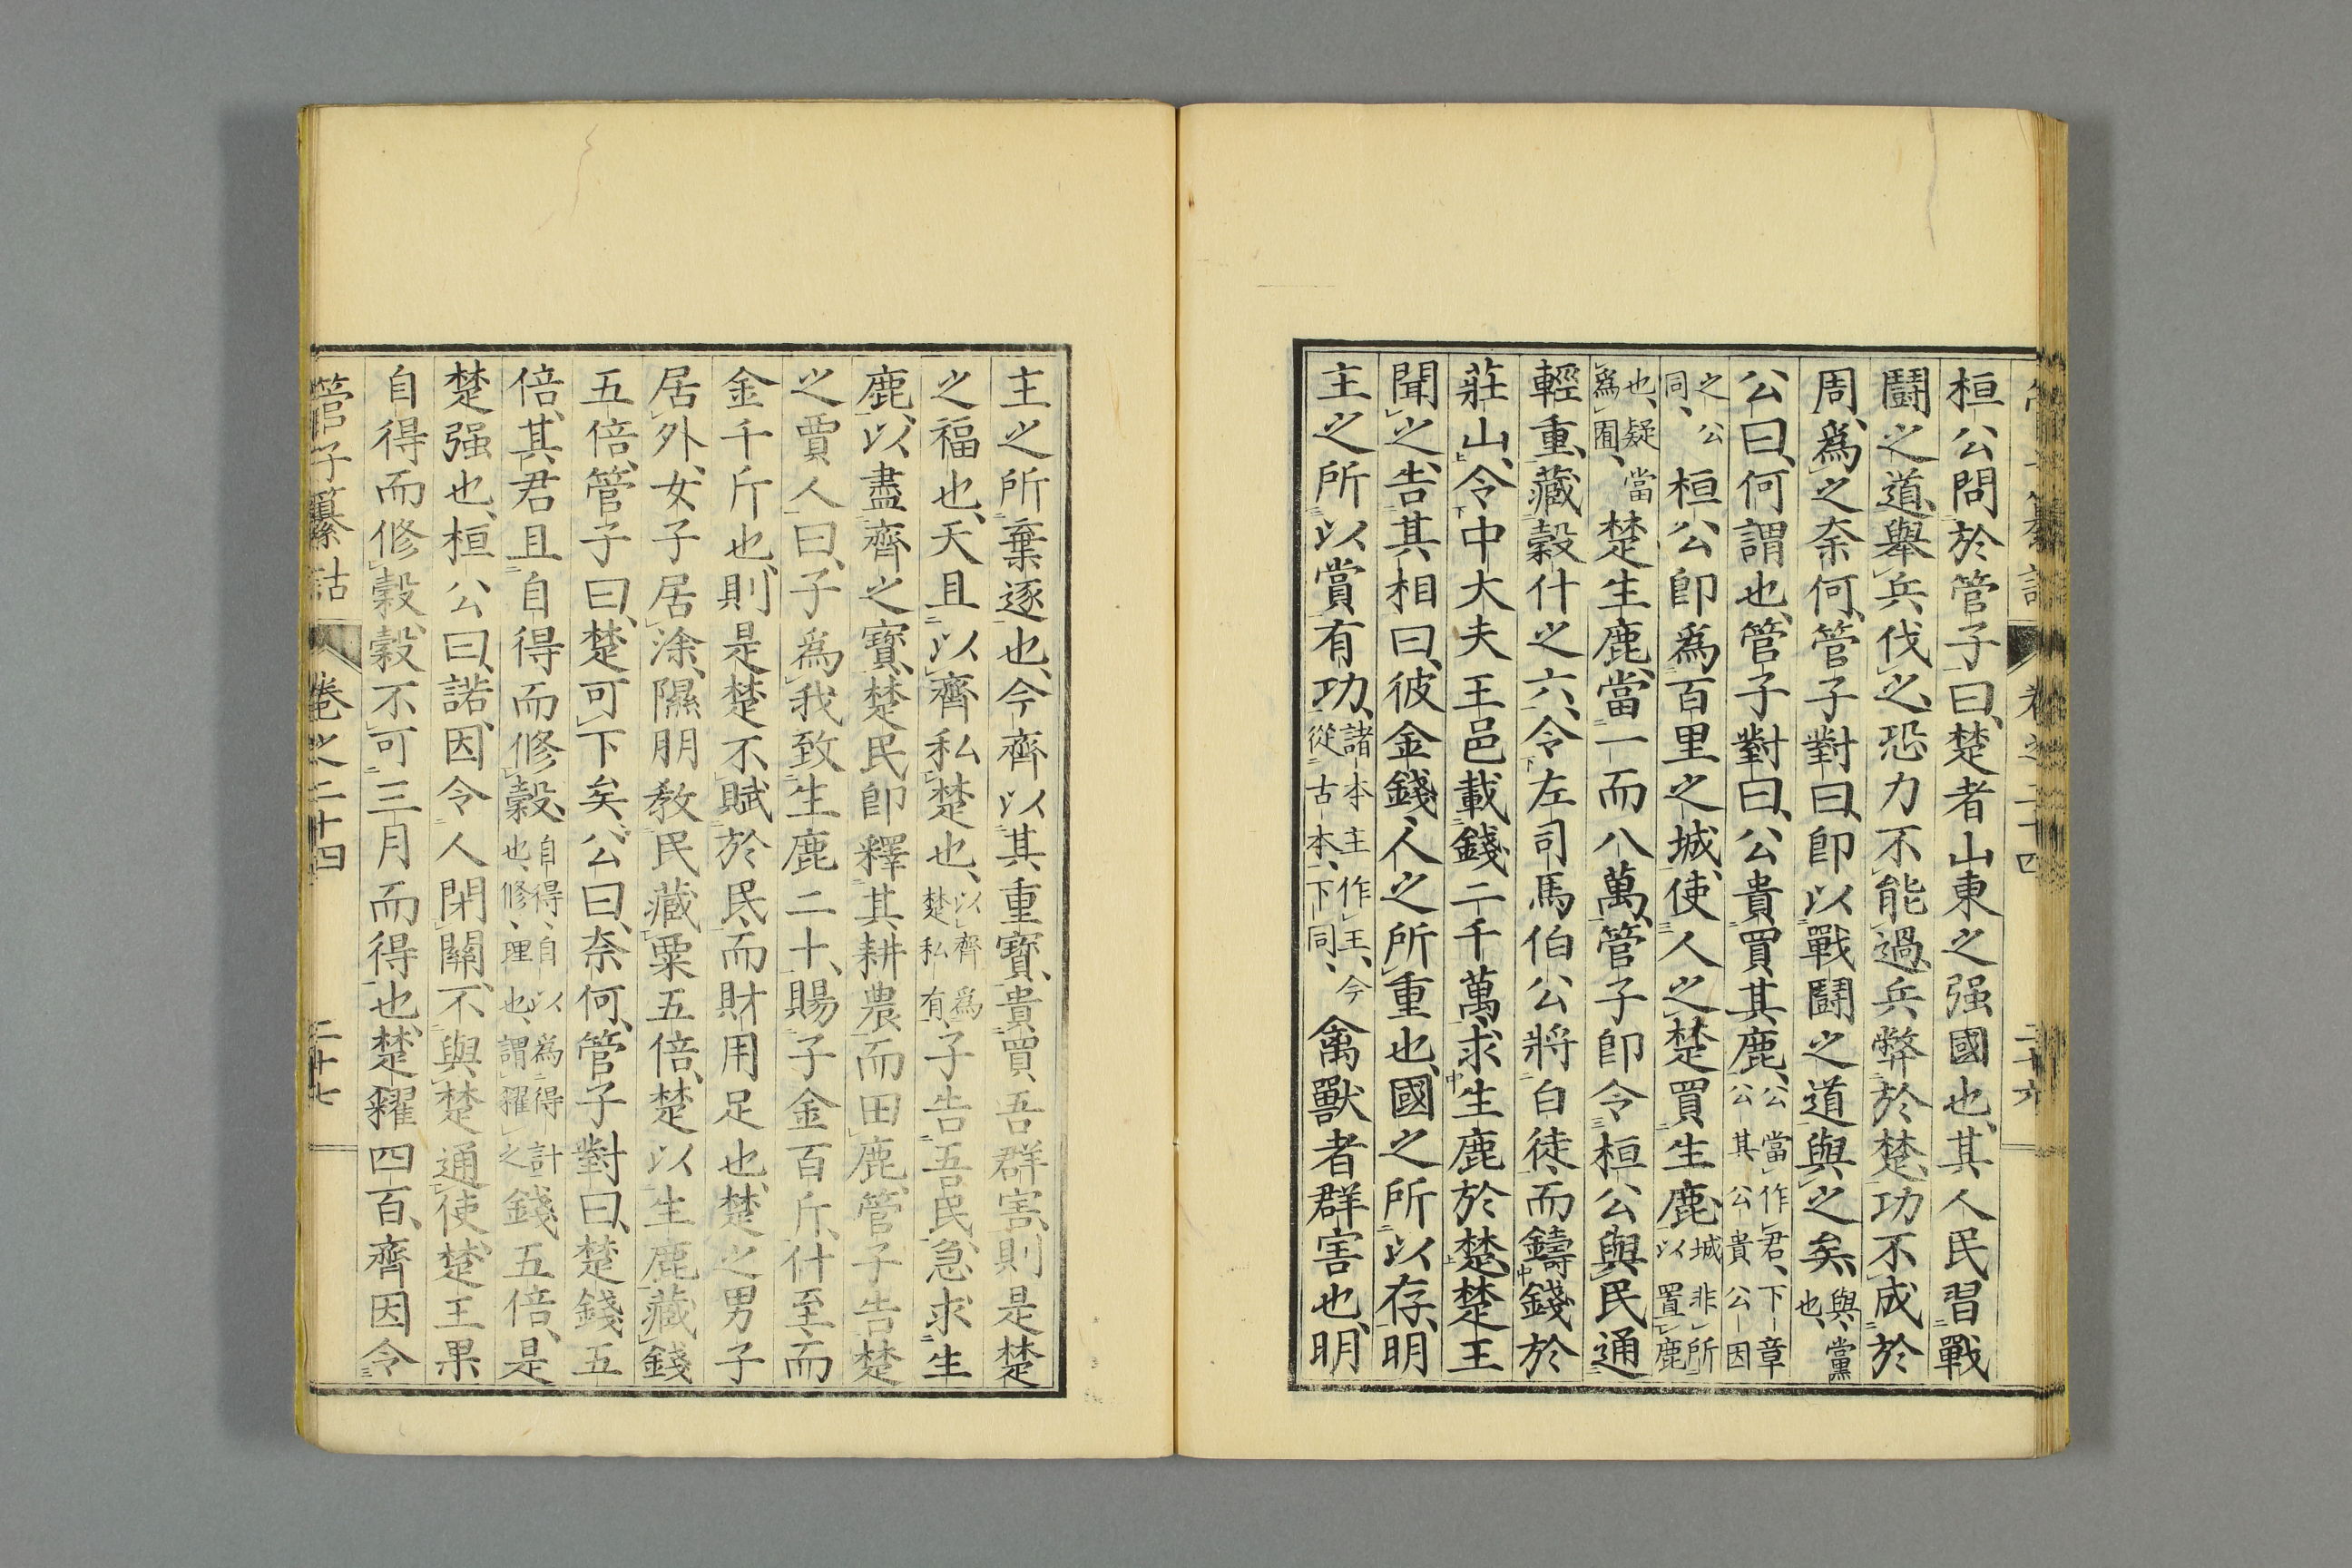 桓公問於管子曰、楚者山東之强國也、其人民習戰
鬪之道、舉兵伐之、恐力不能過、兵弊於楚、功不成於
周、爲之奈何、管子對曰、卽以戰鬪之道與之矣、與、黨也、
公曰、何謂也、管子對曰、公貴買其鹿、公當作君、下章公其公貴公因
之公同、桓公卽爲百里之城、使人之楚買生鹿、城非所以置鹿
也、疑當爲囿、楚生鹿、當一而八萬、管子卽令桓公與民通
輕重、藏穀什之六、令左司馬伯公將白徒、而鑄錢於
莊山、令中大夫王邑載錢二千萬、求生鹿於楚、楚王
聞之、告其相曰、彼金錢、人之所重也、國之所以存、明
主之所以賞有功、諸本主作王、今從古本、下同、禽獸者群害也、明
主之所棄逐也、今齊以其重寶、貴買吾群害、則是楚
之福也、天且以齊私楚也、以齊爲楚私有、子告吾民、急求生
鹿、以盡齊之寶、楚民卽釋其耕農而田鹿、管子告楚
之賈人曰、子爲我致生鹿二十、賜子金百斤、什至而
金千斤也、則是楚不賦於民、而財用足也、楚之男子
居外、女子居涂、隰朋敎民藏粟五倍、楚以生鹿藏錢
五倍、管子曰、楚可下矣、公曰、奈何、管子對曰、楚錢五
倍、其君且自得而修穀、自得、自以爲得計也、修、理也、謂糴之錢五倍、是
楚强也、桓公曰、諾、因令人閉關、不與楚通使、楚王果
自得而修穀、穀不可三月而得也、楚糴四百、齊因令
管子纂詁 卷之二十四 二十七